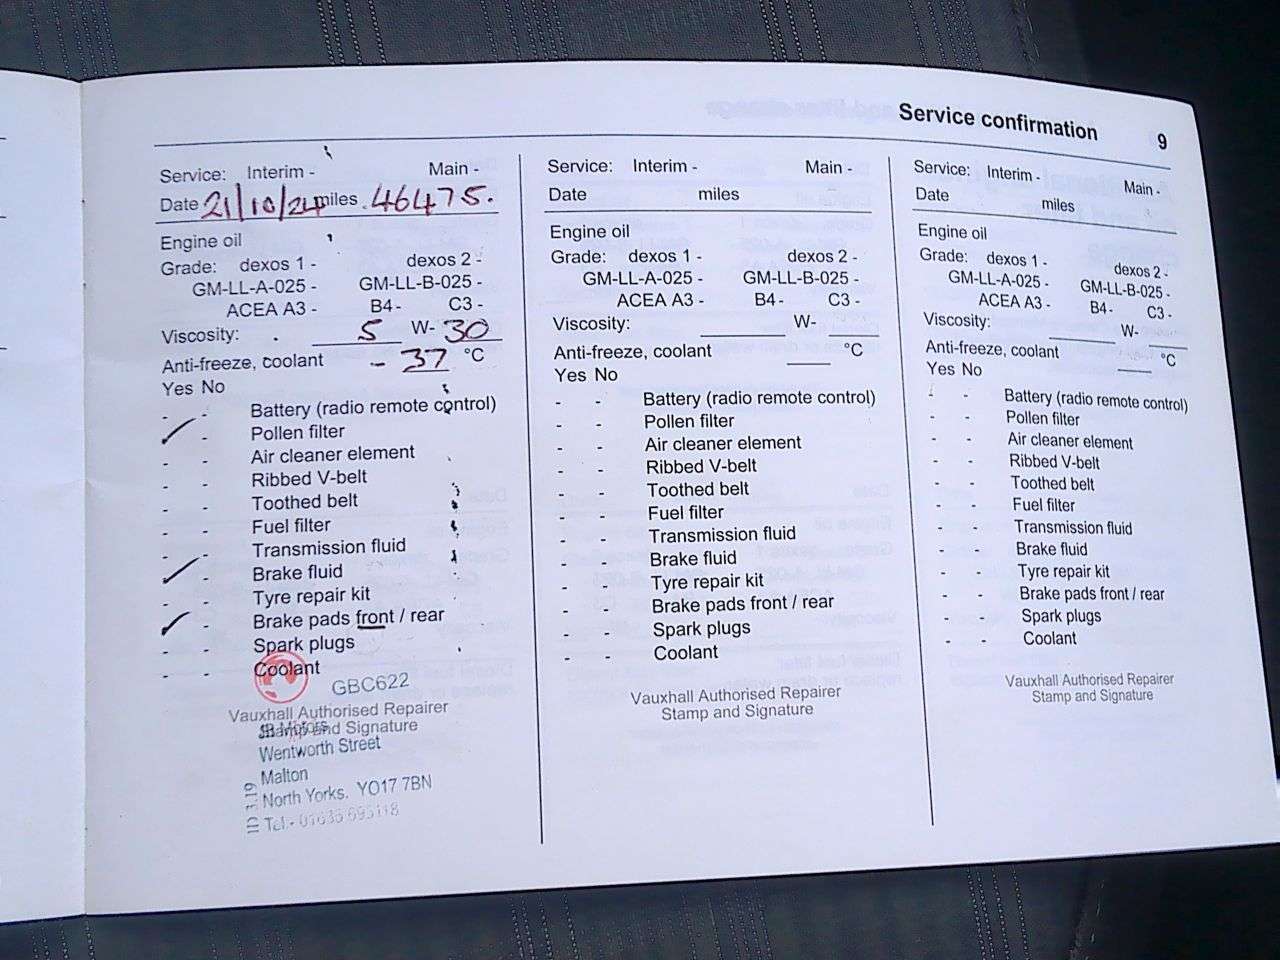 Service confirmation 9
Service: Interim - Main -
Date 21/10/24 miles 46475.
Engine oil
Grade: dexos 1 - dexos 2 -
GM-LL-A-025 - GM-LL-B-025 -
ACEA A3 - B4 - C3 -
Viscosity: 5 W- 30
Anti-freeze, coolant - 37 °C
Yes No
- - Battery (radio remote control)
✓ - Pollen filter
- - Air cleaner element
- - Ribbed V-belt
- - Toothed belt
- - Fuel filter
- - Transmission fluid
✓ - Brake fluid
- - Tyre repair kit
✓ - Brake pads front / rear
- - Spark plugs
- - Coolant
GBC622
Vauxhall Authorised Repairer
Stamp and Signature
Wentworth Street
Malton
North Yorks. YO17 7BN
Tel:-
Service: Interim - Main -
Date miles
Engine oil
Grade: dexos 1 - dexos 2 -
GM-LL-A-025 - GM-LL-B-025 -
ACEA A3 - B4 - C3 -
Viscosity: W-
Anti-freeze, coolant °C
Yes No
- - Battery (radio remote control)
- - Pollen filter
- - Air cleaner element
- - Ribbed V-belt
- - Toothed belt
- - Fuel filter
- - Transmission fluid
- - Brake fluid
- - Tyre repair kit
- - Brake pads front / rear
- - Spark plugs
- - Coolant
Vauxhall Authorised Repairer
Stamp and Signature
Service: Interim - Main -
Date miles
Engine oil
Grade: dexos 1 - dexos 2 -
GM-LL-A-025 - GM-LL-B-025 -
ACEA A3 - B4 - C3 -
Viscosity: W-
Anti-freeze, coolant °C
Yes No
- - Battery (radio remote control)
- - Pollen filter
- - Air cleaner element
- - Ribbed V-belt
- - Toothed belt
- - Fuel filter
- - Transmission fluid
- - Brake fluid
- - Tyre repair kit
- - Brake pads front / rear
- - Spark plugs
- - Coolant
Vauxhall Authorised Repairer
Stamp and Signature